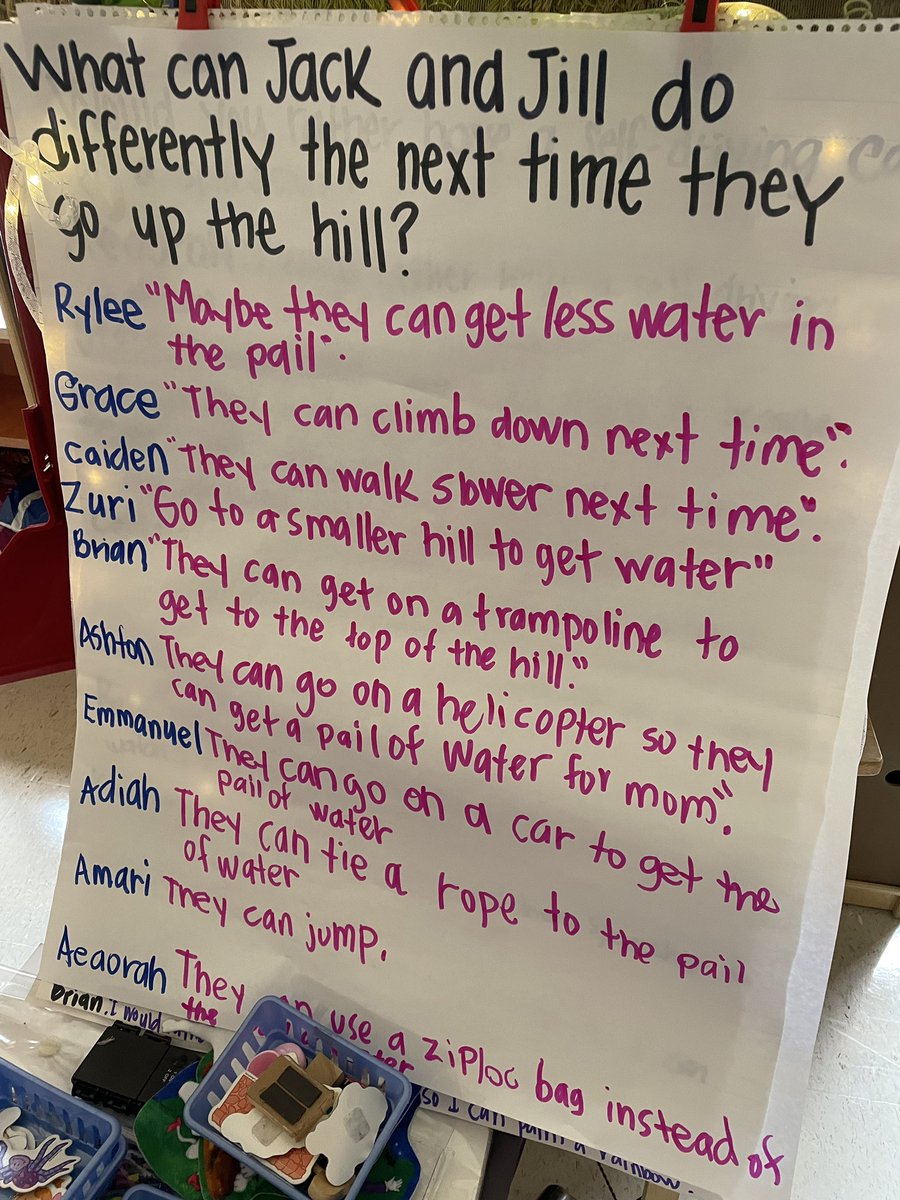 What can Jack and Jill do
differently the next time they
go up the hill?
Rylee "Maybe they can get less water in
the pail".
Grace "They can climb down next time".
Caiden "They can walk slower next time".
Zuri "Go to a smaller hill to get water"
Brian "They can get on a trampoline to
get to the top of the hill."
Ashton They can go on a helicopter so they
can get a pail of water for mom".
Emmanuel They can go on a car to get the
pail of water
Adiah They can tie a rope to the pail
of water
Amari They can jump.
Aeaorah They can use a ziploc bag instead of
the
Brian. I would
so I can paint a rainbow.